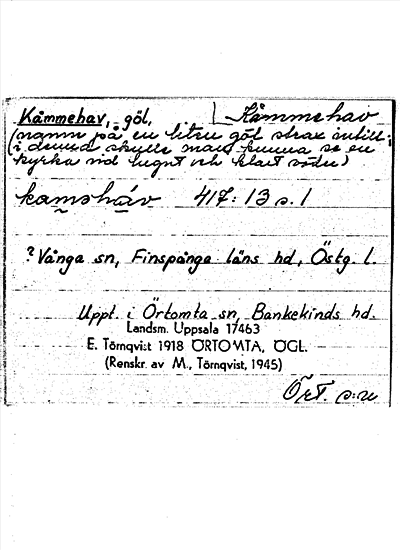 Kämmehav, göl, Kämmehav
(namn på en liten göl strax intill;
i denna skulle man kunna se en
kyrka vid lugnt och klart väder)
kamshåv 417:13 s. 1
? Vånga sn, Finspånga läns hd, Östg. l.
Uppt. i Örtomta sn, Bankekinds hd.
Landsm. Uppsala 17463
E. Törnqvist 1918 ÖRTOMTA, ÖGL.
(Renskr. av M. Törnqvist, 1945)
Ört. s:n